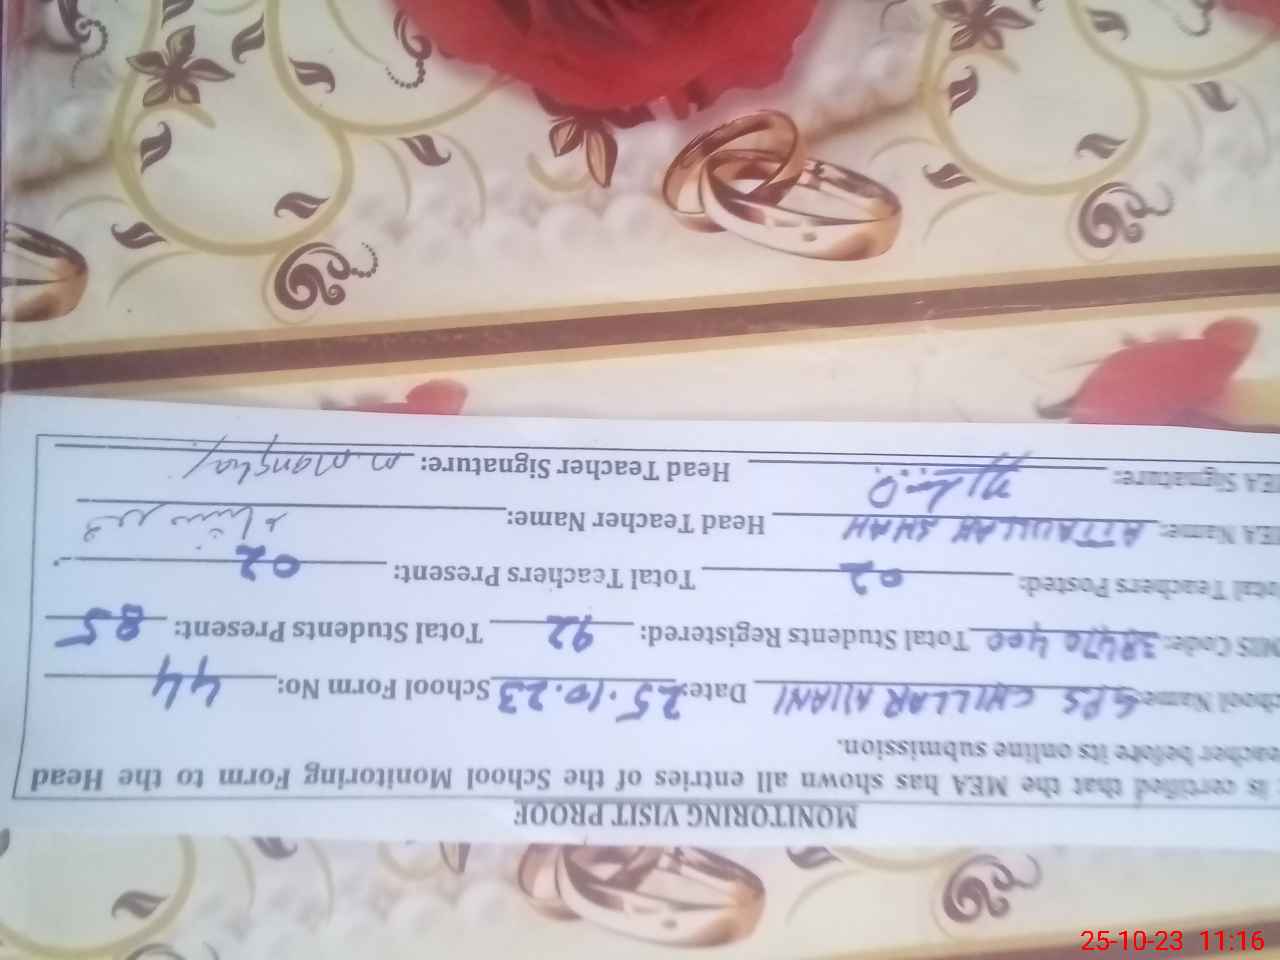 MONITORING VISIT PROOF
is certified that the MEA has shown all entries of the School Monitoring Form to the Head
eacher before its online submission.
chool Name: GPS CHILLAR NIANI Date: 25.10.23 School Form No: 44
MIS Code: 38470400 Total Students Registered: 92 Total Students Present: 85
otal Teachers Posted: 02 Total Teachers Present: 02
EA Name: ATTAULLAH SHAH Head Teacher Name:
EA Signature: Head Teacher Signature: M. Mansha
25-10-23 11:16